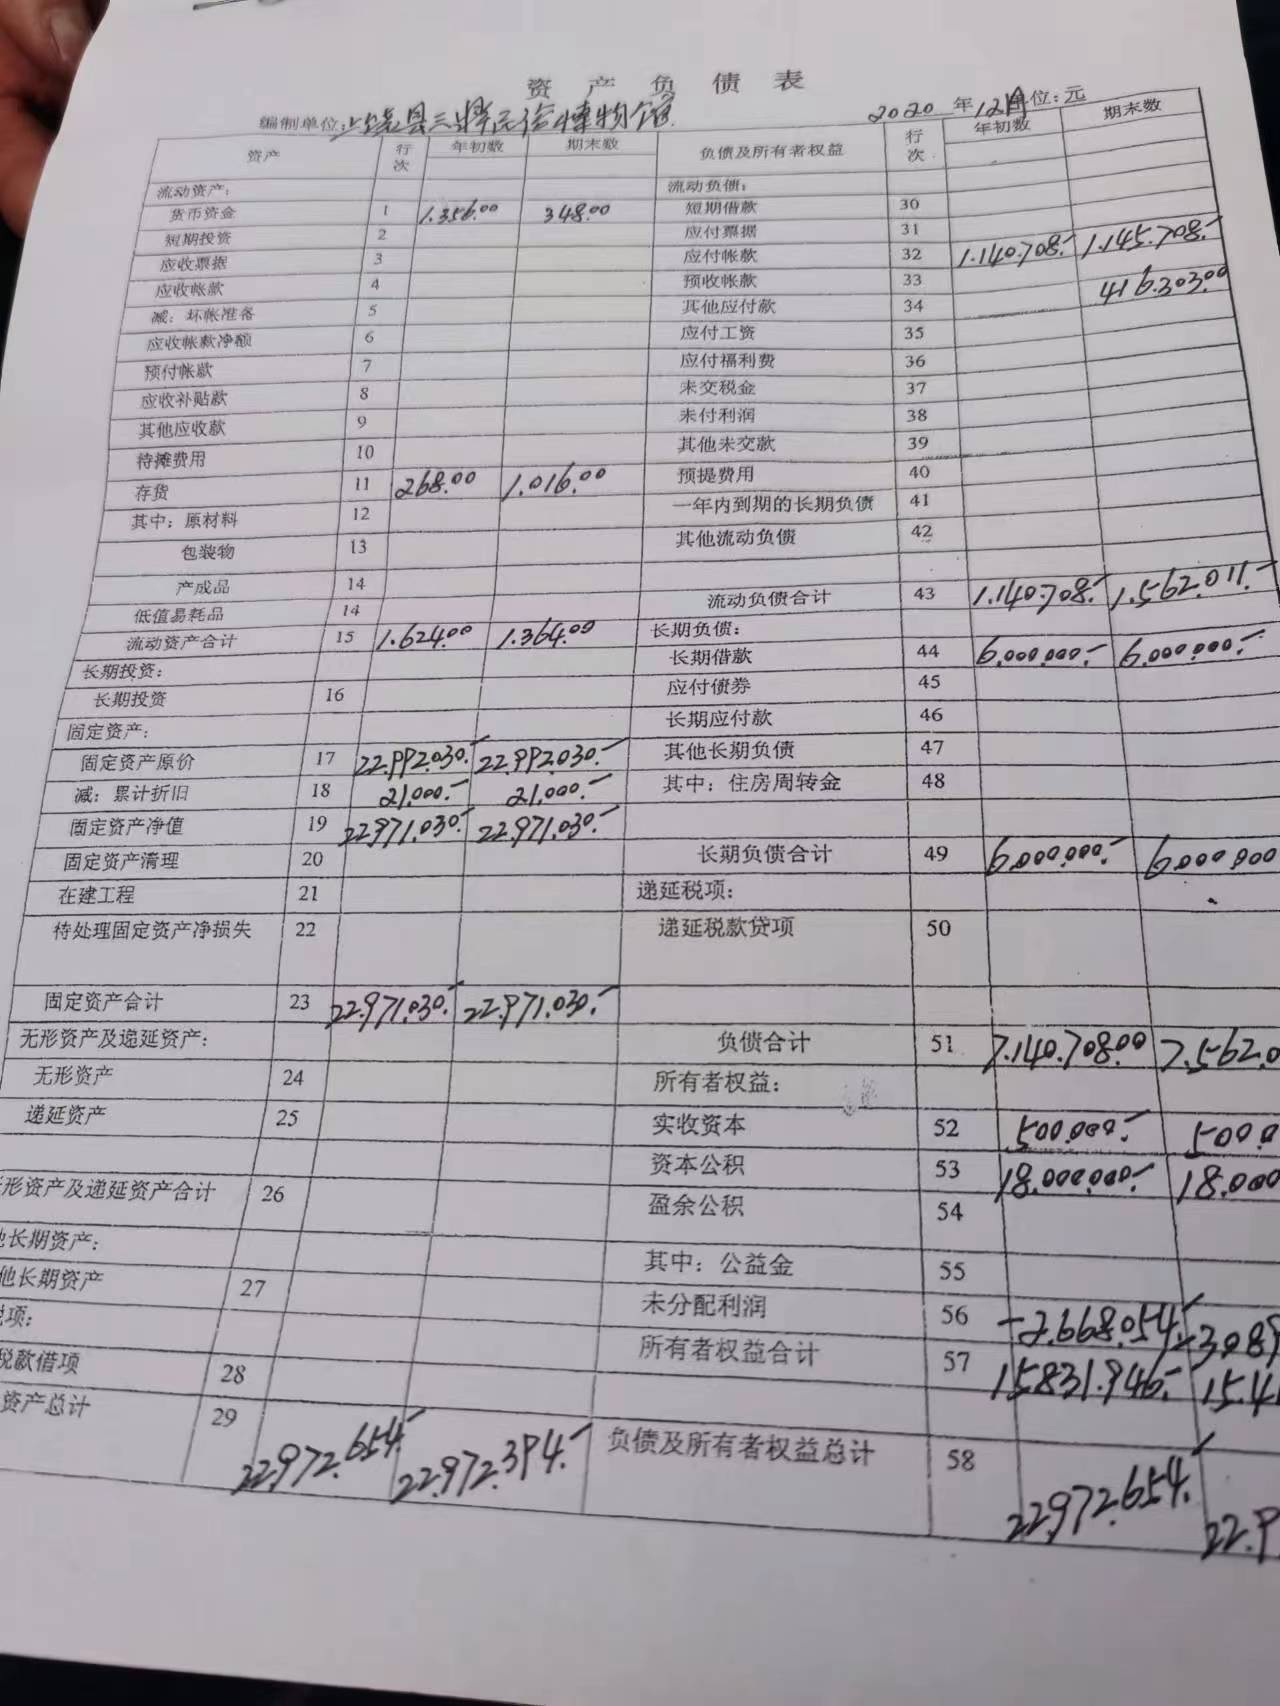 资 产 负 债 表
编制单位: 县三 民俗博物馆 2020 年 12月 单位: 元
资产 行次 年初数 期末数 负债及所有者权益 行次 年初数 期末数
流动资产: 流动负债:
货币资金 1 1.356.00 348.00 短期借款 30
短期投资 2 应付票据 31
应收票据 3 应付帐款 32 1.140.708.- 1.145.708.-
应收帐款 4 预收帐款 33
减: 坏帐准备 5 其他应付款 34 416.303.00
应收帐款净额 6 应付工资 35
预付帐款 7 应付福利费 36
应收补贴款 8 未交税金 37
其他应收款 9 未付利润 38
待摊费用 10 其他未交款 39
存货 11 268.00 1.016.00 预提费用 40
其中: 原材料 12 一年内到期的长期负债 41
包装物 13 其他流动负债 42
产成品 14
低值易耗品 14 流动负债合计 43 1.140.708.- 1.562.011.-
流动资产合计 15 1.624.00 1.364.00 长期负债:
长期投资: 长期借款 44 6.000.000.- 6.000.000.-
长期投资 16 应付债券 45
固定资产: 长期应付款 46
固定资产原价 17 22.992.030.- 22.992.030.- 其他长期负债 47
减: 累计折旧 18 21.000.- 21.000.- 其中: 住房周转金 48
固定资产净值 19 22.971.030.- 22.971.030.-
固定资产清理 20 长期负债合计 49 6.000.000.- 6.000.000
在建工程 21 递延税项:
待处理固定资产净损失 22 递延税款贷项 50
固定资产合计 23 22.971.030.- 22.971.030.-
无形资产及递延资产: 负债合计 51 7.140.708.00 7.562.0
无形资产 24 所有者权益:
递延资产 25 实收资本 52 500.000.- 500.0
资本公积 53 18.000.000.- 18.000
形资产及递延资产合计 26 盈余公积 54
长期资产: 其中: 公益金 55
他长期资产 27 未分配利润 56 -2.668.054.- -3.089
项: 所有者权益合计 57 15.831.946.- 15.41
税款借项 28
资产总计 29 22.972.654.- 22.972.394.- 负债及所有者权益总计 58 22.972.654.- 22.9